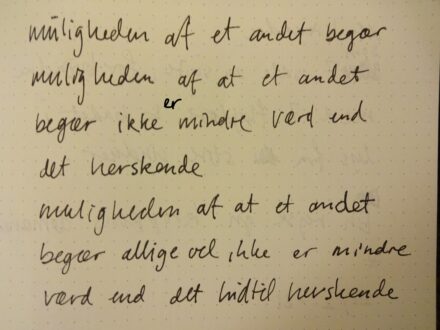 muligheden af et andet begær
muligheden af at et andet
begær ikke er mindre værd end
det herskende
muligheden af at et andet
begær alligevel ikke er mindre
værd end det hidtil herskende